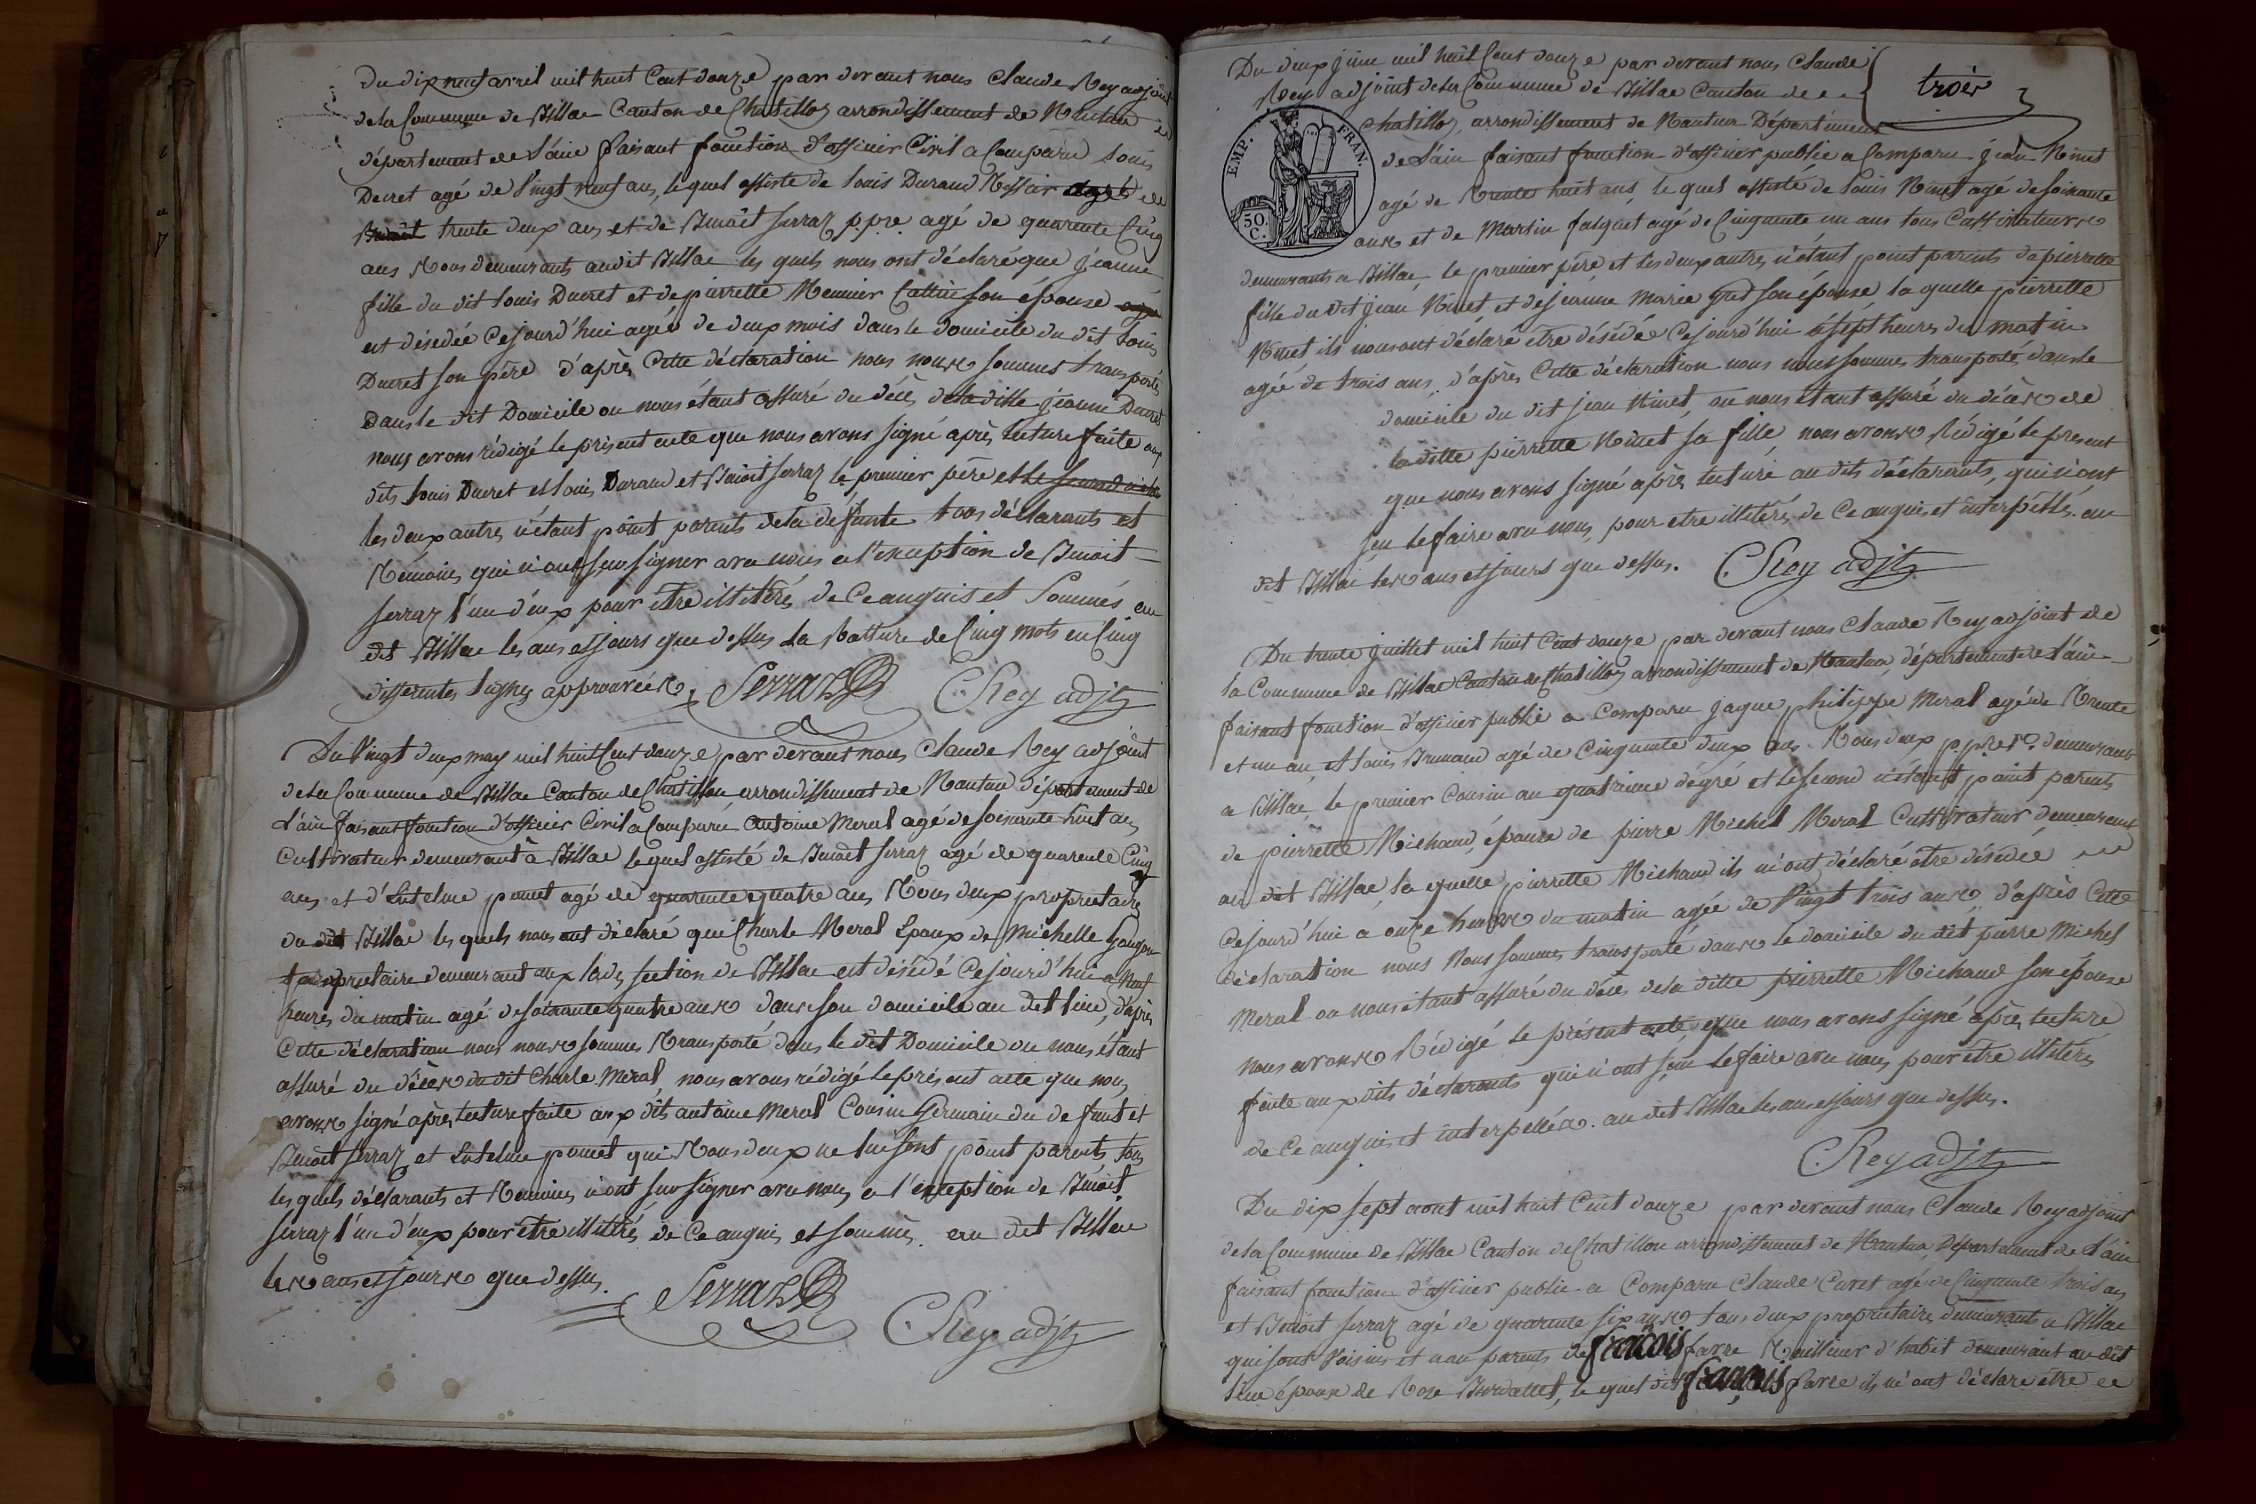 Du dix neuf avril mil huit Cent douze par devant nous Claude Rey adjoint
de la Commune de Billiac Canton de Chatillon arrondissement de Nantua
département de l'ain faisant fonction d'officier Civil a Comparu Louis
Ducret agé de Vingt neuf ans, le quel assisté de Louis Durand Tissier agé de
trente deux ans et de Benoit Serraz ppre agé de quarente Cinq
ans Tous demeurants audit Billiac les quels nous ont déclaré que jeanne
fille du dit Louis Ducret et de pierrette Meunier Cattin son épouse
est désédée Cejourd'hui agée de deux mois dans le domicile du dit Louis
Ducret son père d'après Cette déclaration nous nous sommes transportés
Dans le dit Domicile ou nous étant assuré du décès de la ditte jeanne Ducret
nous avons rédigé le présent acte que nous avons signé après lecture faite aux
dits Louis Ducret et Louis Durand et Benoit Serraz le premier père et le second
les deux autres n'étant point parents de la défunte tous déclarants et
Témoins qui n'ont seu signer avec nous a l'exception de Benoit
Serraz l'un d'eux pour être illitérés de Ce enquis et Sommés au
dit Billiac les ans et jours que dessus La Ratture de Cinq mots en Cinq
differentes lignes approuvée Serraz B C. Rey adjt
Du Vingt deux may mil huit Cent douze par devant nous Claude Rey adjoint
de la Commune de Billiac Canton de Chatillon arrondissement de Nantua département de
L'ain faisant fonction d'officier Civil a Comparu Antoine Meral agé de soixante huit ans
Cultivateur demeurant à Billiac lequel assisté de Benoit Serraz agé de quarente Cinq
ans et d'Entelme pomet agé de quarente quatre ans Tous deux proprietaire
du dit Billiac les quels nous ont déclaré que Charle Meral Epoux de Michelle
proprietaire demeurant aux lades section de Billiac est désédé Cejourd'hui a Neuf
heures du matin agé de soixante quatre ans dans son domicile au dit lieu, d'après
Cette déclaration nous nous sommes Transporté dans le dit Domicile ou nous étant
assuré du décès du dit Charle Meral, nous avons rédigé le présent acte que nous
avons signé après lecture faite aux dits antoine Meral Cousin Germain du defunt et
Benoit Serraz et Entelme pomet qui Tous deux ne lui sont point parents tous
les quels déclarants et Témoins n'ont seu signer avec nous a l'exception de Benoit
Serraz l'un d'eux pour être illitérés de Ce enquis et sommés. au dit Billiac
les ans et jours que dessus. Serraz B
C. Rey adjt
trois
Du deux juin mil huit Cent douze par devant nous Claude
Rey adjoint de la Commune de Billiac Canton de
Chatillon, arrondissement de Nantua Département
EMP. FRAN.
50 C.
de L'ain faisant fonction d'officier public a Comparu jean Ninet
agé de Trente huit ans, le quel assisté de Louis Ninet agé de soixante
ans et de Martin falquet agé de Cinquante un ans tous Cultivateurs
demeurants a Billiac, le premier père et les deux autres n'étant point parents de pierrette
fille du dit jean Ninet et de jeanne Marie son épouse, la quelle pierrette
Ninet ils nous ont déclaré être désédé Cejourd'hui à sept heures du matin
agée de trois ans, d'après Cette déclaration nous nous sommes transporté dans le
domicile du dit jean Ninet, ou nous étant assuré du décès de
la ditte pierrette Ninet sa fille nous avons Rédigé le present
que nous avons signé après lecture au dits déclarants, qui n'ont
seu le faire avec nous, pour etre illitérés, de Ce enquis et interpéllés. au
dit Billiac les ans et jours que dessus. C. Rey adjt
Du trente juillet mil huit Cent douze par devant nous Claude Rey adjoint de
la Commune de Billiac Canton de Chatillon arrondissement de Nantua département de L'ain
faisant fonction d'officier public a Comparu jaque philippe Meral agé de Trente
et un an, et Louis Brunand agé de Cinquante deux ans Tous deux ppre demeurants
a Billiac, le premier Cousin au quatrième dégré et le second n'étant point parents
de pierrette Michaud, épouse de pierre Michel Meral Cultivateur demeurant
au dit Billiac, la quelle pierrette Michaud ils m'ont déclaré être désédée
Cejourd'hui a onze heures du matin agée de Vingt trois ans, d'après Cette
déclaration nous Nous sommes transporté dans le domicile du dit pierre Michel
Meral ou nous étant assuré du décès de la ditte pierrette Michaud son épouse
nous avons Rédigé le présent acte, que nous avons signé après lecture
faite aux dits déclarants qui n'ont seu le faire avec nous, pour être illitérés
de Ce enquis et interpellés. au dit Billiac les ans et jours que dessus.
C. Rey adjt
Du dix sept aout mil huit Cent douze par devant nous Claude Rey adjoint
de la Commune de Billiac Canton de Chatillon arrondissement de Nantua, Département de L'ain
faisant fonction d'officier public a Comparu Claude Curet agé de Cinquante trois ans
et Benoit Serraz agé de quarente six ans tous deux proprietaire demeurants a Billiac
qui sont Voisins et non parents de françois farre Tailleur d'habit demeurant au dit
lieu époux de Rose, le quel dit françois farre ils m'ont déclaré être